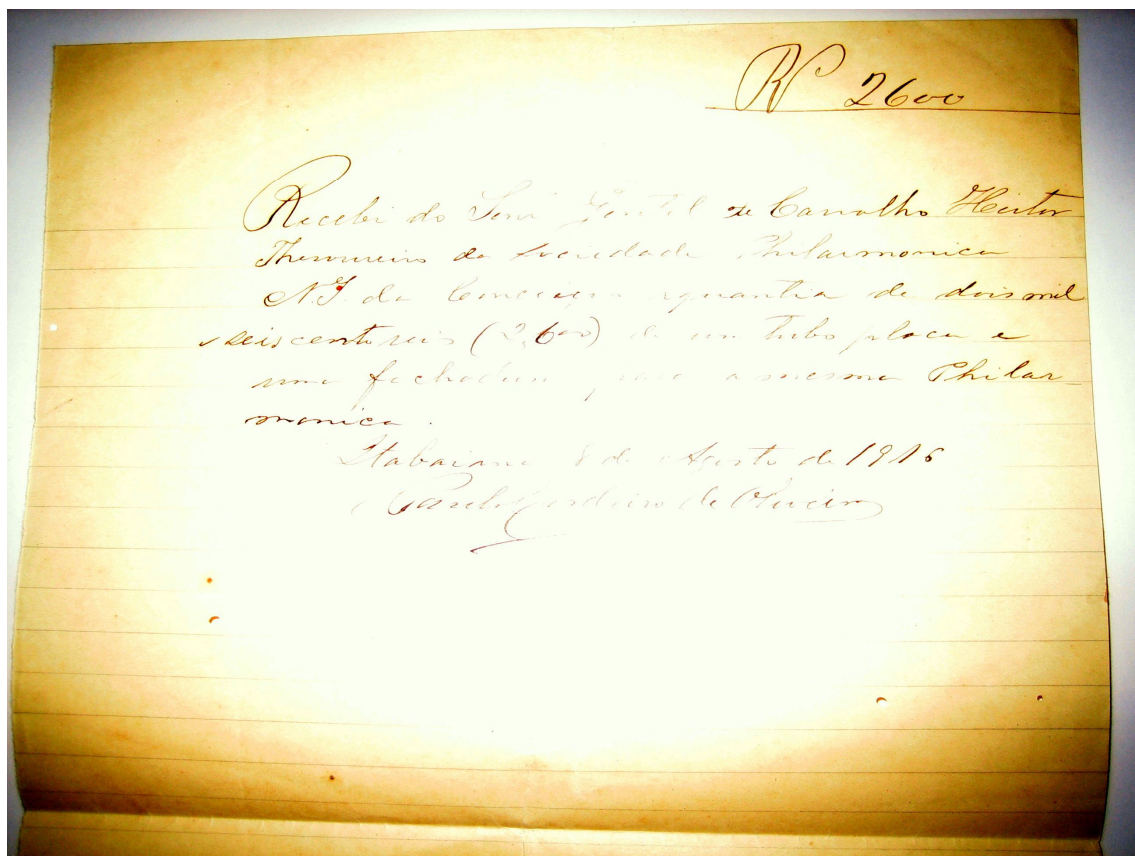 R 2600
Recebi do Senr Gentil de Carvalho Heitor
Thesoureiro da Sociedade Philarmonica
N. S. da Conceição aquantia de dois mil
seiscentos reis (2,600) de um tubo placa e
uma fechadura para a mesma Philar-
monica.
Itabaiana 8 de Agosto de 1916
Cordeiro de Oliveira